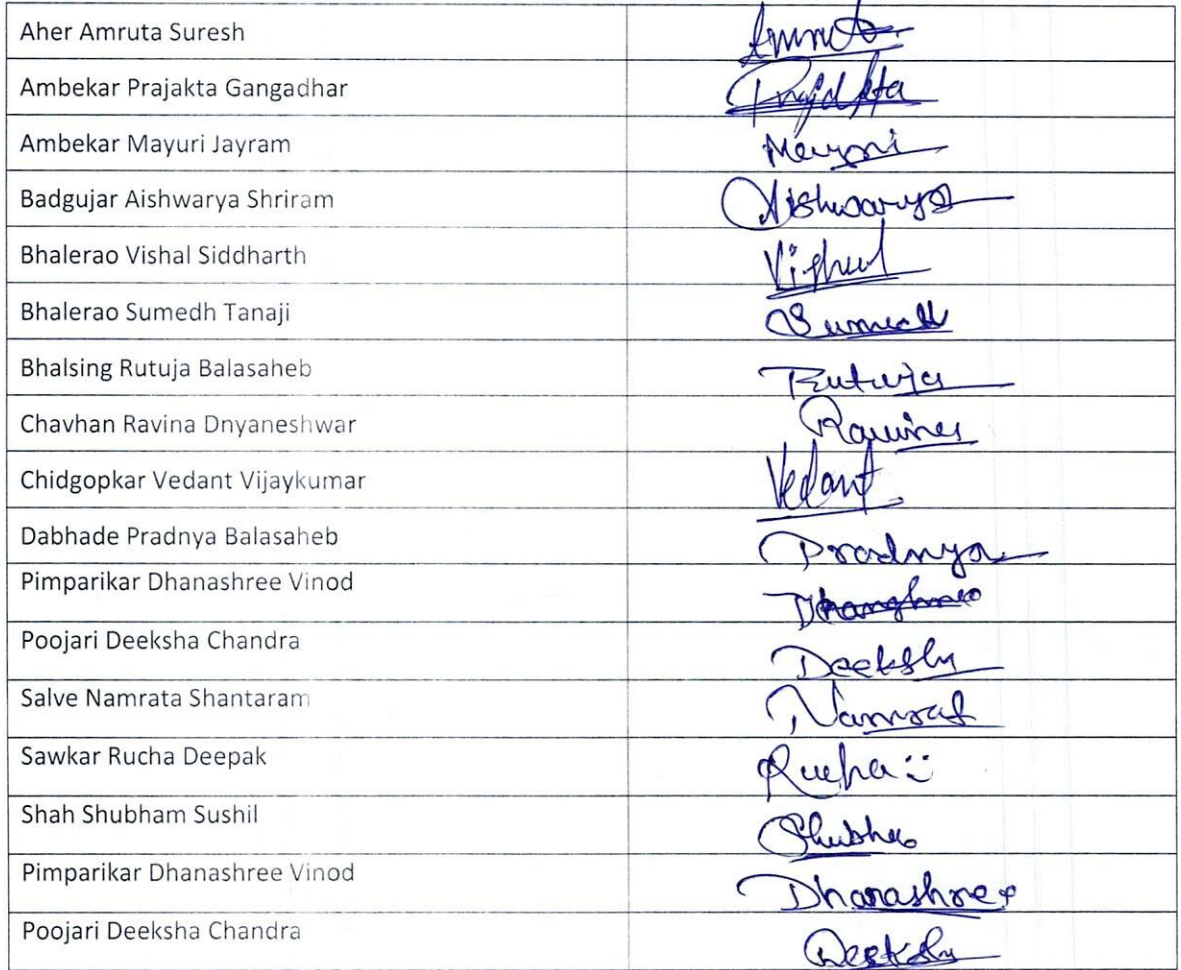 Aher Amruta Suresh Amruta
Ambekar Prajakta Gangadhar Prajakta
Ambekar Mayuri Jayram Mayuri
Badgujar Aishwarya Shriram Aishwarya
Bhalerao Vishal Siddharth Vishal
Bhalerao Sumedh Tanaji Sumedh
Bhalsing Rutuja Balasaheb Rutuja
Chavhan Ravina Dnyaneshwar Ravina
Chidgopkar Vedant Vijaykumar Vedant
Dabhade Pradnya Balasaheb Pradnya
Pimparikar Dhanashree Vinod
Poojari Deeksha Chandra Deeksha
Salve Namrata Shantaram Namrat
Sawkar Rucha Deepak Rucha
Shah Shubham Sushil
Pimparikar Dhanashree Vinod Dhanashree
Poojari Deeksha Chandra Deeksha